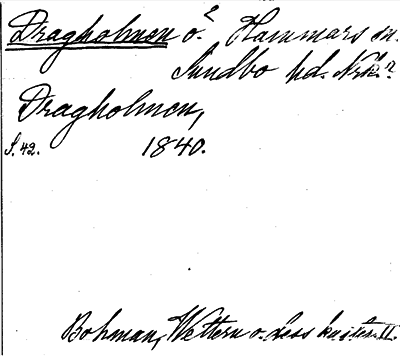 Dragholmen ö. Hammars sn.
Sundbo hd. Nrk.
Dragholmen,
S. 42. 1840.
Bohman, Wettern o. dess kuster. II.